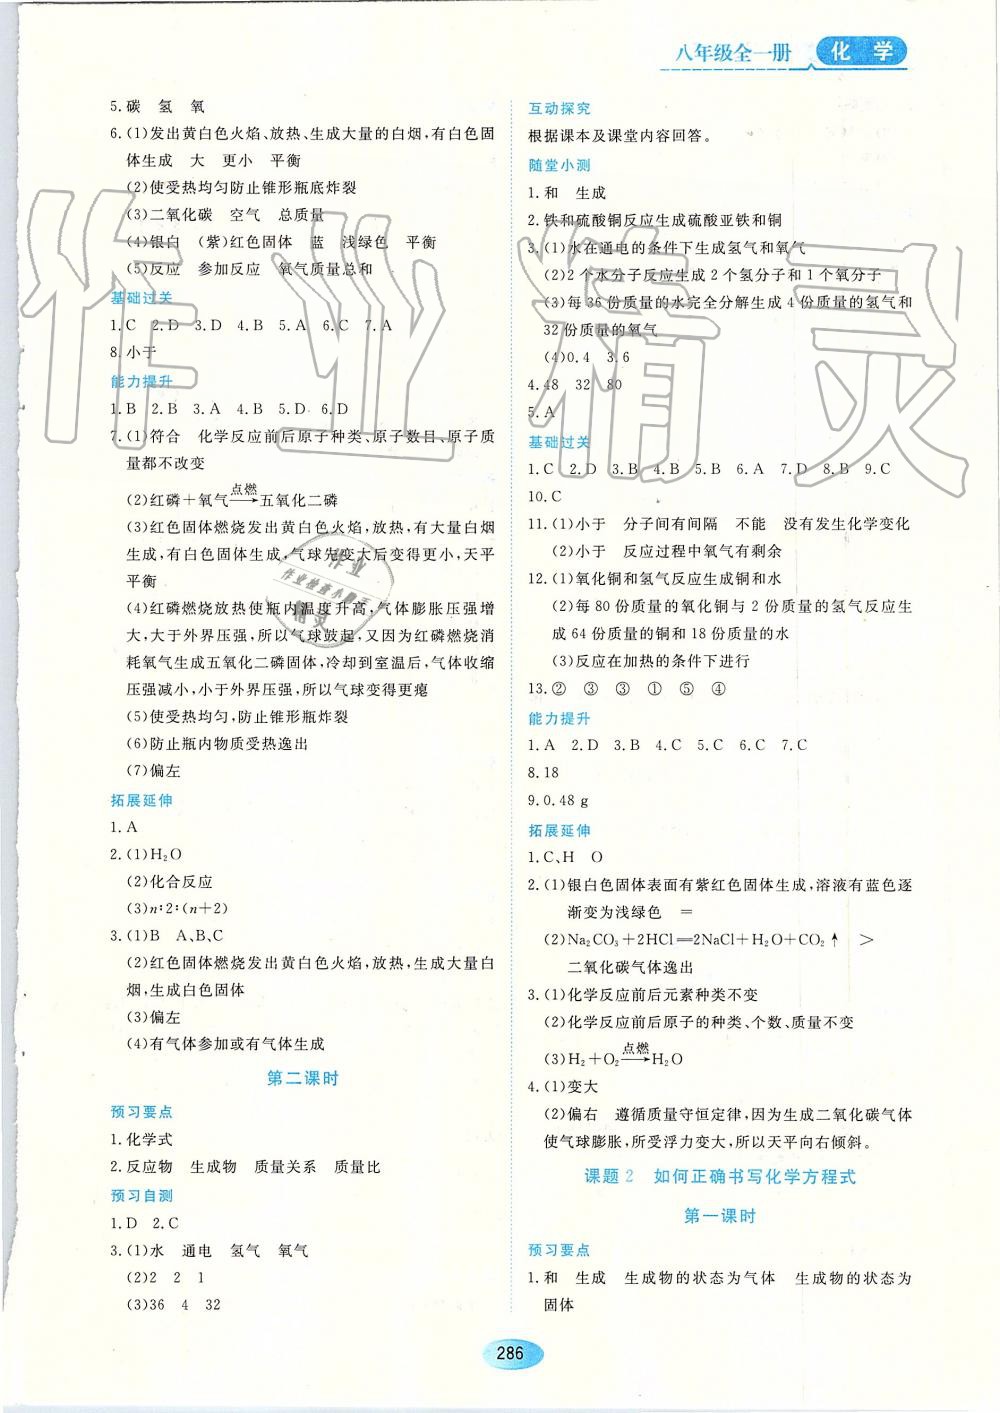 八年级全一册 化学
5.碳 氢 氧
6.(1)发出黄白色火焰、放热、生成大量的白烟,有白色固
体生成 大 更小 平衡
(2)使受热均匀防止锥形瓶底炸裂
(3)二氧化碳 空气 总质量
(4)银白 (紫)红色固体 蓝 浅绿色 平衡
(5)反应 参加反应 氧气质量总和
基础过关
1.C 2.D 3.D 4.B 5.A 6.C 7.A
8.小于
能力提升
1.B 2.B 3.A 4.B 5.D 6.D
7.(1)符合 化学反应前后原子种类、原子数目、原子质
量都不改变
(2)红磷+氧气—点燃→五氧化二磷
(3)红色固体燃烧发出黄白色火焰,放热,有大量白烟
生成,有白色固体生成,气球先变大后变得更小,天平
平衡
(4)红磷燃烧放热使瓶内温度升高,气体膨胀压强增
大,大于外界压强,所以气球鼓起,又因为红磷燃烧消
耗氧气生成五氧化二磷固体,冷却到室温后,气体收缩
压强减小,小于外界压强,所以气球变得更瘪
(5)使受热均匀,防止锥形瓶炸裂
(6)防止瓶内物质受热逸出
(7)偏左
拓展延伸
1.A
2.(1)H₂O
(2)化合反应
(3)n∶2∶(n+2)
3.(1)B A、B、C
(2)红色固体燃烧发出黄白色火焰,放热,生成大量白
烟,生成白色固体
(3)偏左
(4)有气体参加或有气体生成
第二课时
预习要点
1.化学式
2.反应物 生成物 质量关系 质量比
预习自测
1.D 2.C
3.(1)水 通电 氢气 氧气
(2)2 2 1
(3)36 4 32
互动探究
根据课本及课堂内容回答。
随堂小测
1.和 生成
2.铁和硫酸铜反应生成硫酸亚铁和铜
3.(1)水在通电的条件下生成氢气和氧气
(2)2个水分子反应生成2个氢分子和1个氧分子
(3)每36份质量的水完全分解生成4份质量的氢气和
32份质量的氧气
(4)0.4 3.6
4.48 32 80
5.A
基础过关
1.C 2.D 3.B 4.B 5.B 6.A 7.D 8.B 9.C
10.C
11.(1)小于 分子间有间隔 不能 没有发生化学变化
(2)小于 反应过程中氧气有剩余
12.(1)氧化铜和氢气反应生成铜和水
(2)每80份质量的氧化铜与2份质量的氢气反应生
成64份质量的铜和18份质量的水
(3)反应在加热的条件下进行
13.② ③ ③ ① ⑤ ④
能力提升
1.A 2.D 3.B 4.C 5.C 6.C 7.C
8.18
9.0.48 g
拓展延伸
1.C、H O
2.(1)银白色固体表面有紫红色固体生成,溶液有蓝色逐
渐变为浅绿色 =
(2)Na₂CO₃+2HCl══2NaCl+H₂O+CO₂↑ >
二氧化碳气体逸出
3.(1)化学反应前后元素种类不变
(2)化学反应前后原子的种类、个数、质量不变
(3)H₂+O₂—点燃→H₂O
4.(1)变大
(2)偏右 遵循质量守恒定律,因为生成二氧化碳气体
使气球膨胀,所受浮力变大,所以天平向右倾斜。
课题2 如何正确书写化学方程式
第一课时
预习要点
1.和 生成 生成物的状态为气体 生成物的状态为
固体
286
作业精灵
作业
作业检查小助手
精灵